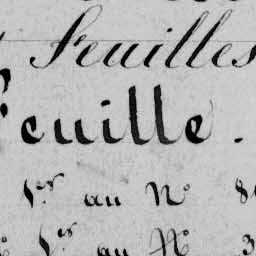 Feuilles
Feuille.
1er au No 8
1er au No 3